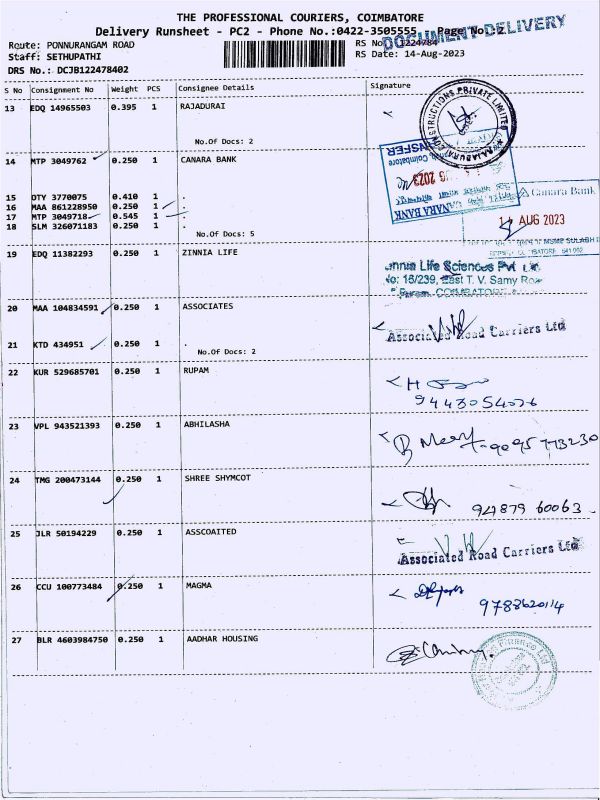 THE PROFESSIONAL COURIERS, COIMBATORE
Delivery Runsheet - PC2 - Phone No.:0422-3505555 Page No.: 2
DOCUMENT DELIVERY
Route: PONNURANGAM ROAD
RS No. 1224784
Staff: SETHUPATHI
RS Date: 14-Aug-2023
DRS No.: DCJB122478402
S No Consignment No Weight PCS Consignee Details Signature
13 EDQ 14965503 0.395 1 RAJADURAI
No.Of Docs: 2
14 MTP 3049762 0.250 1 CANARA BANK
CANARA BANK
2023
Canara Bank
15 OTY 3770075 0.410 1 .
16 MAA 861228950 0.250 1 .
17 MTP 3049718 0.545 1 .
AUG 2023
18 SLM 326071183 0.250 1 .
No.Of Docs: 5
19 EDQ 11382293 0.250 1 ZINNIA LIFE
Life Sciences Pvt
No: 16/239, East T. V. Samy Row
20 MAA 104834591 0.250 1 ASSOCIATES
Associated Road Carriers Ltd
21 KTD 434951 0.250 1 .
No.Of Docs: 2
22 KUR 529685701 0.250 1 RUPAM
9443054026
23 VPL 943521393 0.250 1 ABHILASHA
24 TMG 200473144 0.250 1 SHREE SHYMCOT
94879 60063
25 JLR 50194229 0.250 1 ASSCOAITED
Associated Road Carriers Ltd
26 CCU 100773484 0.250 1 MAGMA
9788620114
27 BLR 4603984750 0.250 1 AADHAR HOUSING